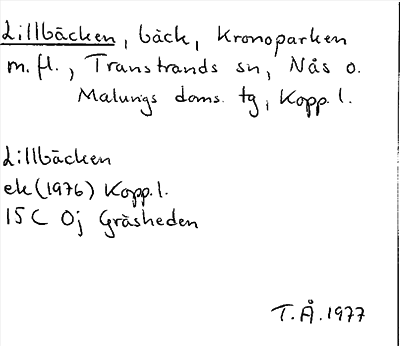 Lillbäcken, bäck, Kronoparken
m.fl., Transtrands sn, Nås o.
Malungs doms. tg, Kopp. l.
Lillbäcken
ek (1976) Kopp. l.
15 C 0j Gräsheden
T.Å. 1977